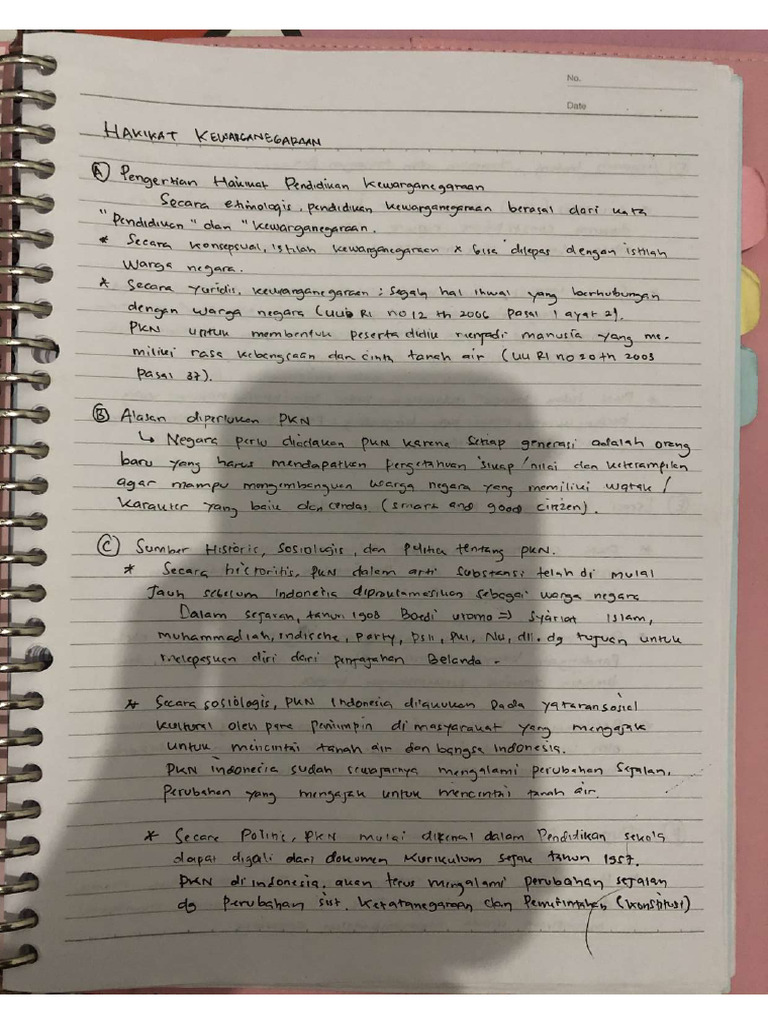 No.
Date
HAKIKAT KEWARGANEGARAAN
(A) Pengertian Hakikat Pendidikan Kewarganegaraan
Secara ethimologis, pendidikan kewarganegaraan berasal dari kata
"Pendidikan" dan "kewarganegaraan.
* Secara konsepsual, istilah kewarganegaraan * bisa dilepas dengan istilah
warga negara.
* Secara yuridis, kewarganegaraan : segala hal ihwal yang berhubungan
dengan warga negara (UUD RI no 12 th 2006 pasal 1 ayat 2).
PKN untuk membentuk peserta didik menjadi manusia yang me-
miliki rasa kebangsaan dan cinta tanah air (UU RI no 20 th 2003
Pasal 37).
(B) Alasan diperlukan PKN
↳ Negara perlu diadakan PKN karena setiap generasi adalah orang
baru yang harus mendapatkan pengetahuan sikap/nilai dan keterampilan
agar mampu mengembangkan warga negara yang memiliki watak /
karakter yang baik dan cerdas (smart and good citizen).
(C) Sumber Historis, sosiologis, dan politik tentang PKN.
* Secara historitis, PKN dalam arti substansi telah di mulai
jauh sebelum Indonetia diproklamasikan sebagai warga negara
Dalam sejarah, tahun 1908 Boedi utomo => syariat Islam,
muhammadiah, indische, party, PSII, PKI, NU, dll. dg tujuan untuk
melepaskan diri dari penjajahan Belanda.
* Secara sosiologis, PKN Indonesia dilakukan pada yataran sosial
kultural oleh para pemimpin di masyarakat yang mengajak
untuk mencintai tanah air dan bangsa Indonesia.
PKN indonesia sudah sewajarnya mengalami perubahan sejalan,
perubahan yang mengajak untuk mencintai tanah air
* Secara Politis, PKN mulai dikenal dalam Pendidikan sekola
dapat digali dari dokumen kurikulum sejak tahun 1957.
PKN di indonesia, akan terus mengalami perubahan sejalan
dg perubahan sist. ketatanegaraan dan Pemerintahan (konstitusi)